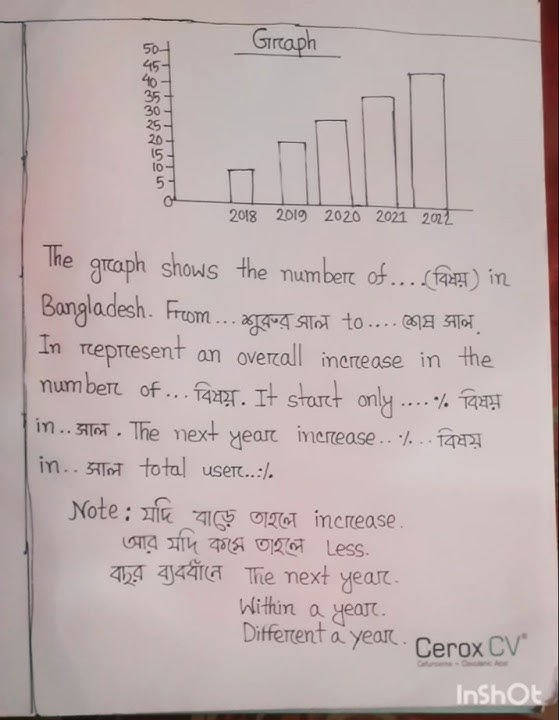 Graph
50
45
40
35
30
25
20
15
10
5
0
2018 2019 2020 2021 2022
The graph shows the number of....(বিষয়) in
Bangladesh. From... শুরুর সাল to.... শেষ সাল.
In represent an overall increase in the
number of ... বিষয়. It start only ....% বিষয়
in.. সাল. The next year increase..%... বিষয়
in.. সাল total user..%
Note: যদি বাড়ে তাহলে increase.
আর যদি কমে তাহলে Less.
বছর ব্যবধানে The next year.
Within a year.
Different a year.
Cerox CV®
Cefuroxime + Clavulanic Acid
InShOt